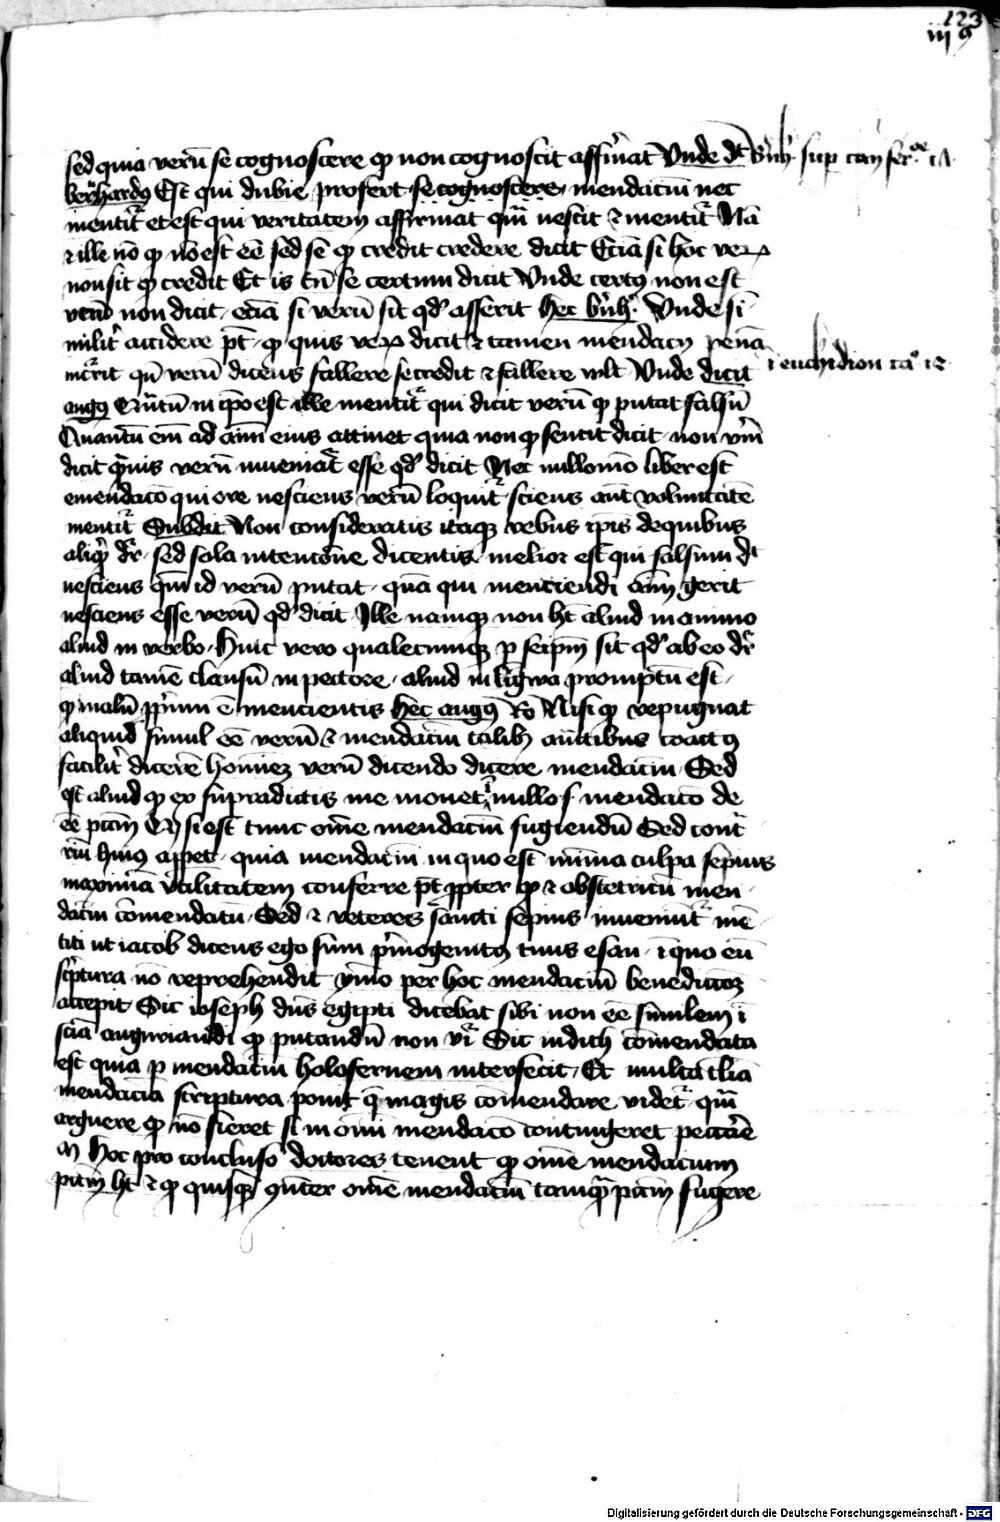 123
iij 9
sed quia verū se cognoscere qͥ non cognoscit affirmat Vnde dt
Bernhꝰ sup can ser.ͦⁿᵉ 17
bernhardꝰ Est qui dubie profert se cognoscere mendaciū nec
mentitͬ et est qui veritatem affirmat quā nescit ⁊ mentitͬ Nā
⁊ ille nō qͥ nō est eē sed se qͥ credit credere dicit Eciā si hoc verꝝ
non sit qͥ credit Et is tn̄ se certum dicit Vnde certꝰ non est
verū non dicit eciā si verū sit qd' asserit hec bn̄h. Vnde si
militͬ accidere pt qͥ quis verꝝ dicit ⁊ tamen mendacij penā
mr̄it qn̄ verū dicens fallere se credit ⁊ fallere vult Vnde dicit
i enchidion caͦ 12
augꝰ Quātū in ip̄o est ille mentitͬ qui dicit verū qͥ putat falsū
Quantū em̄ ad aīm eius attinet quia non qͥ sentit dicit non vm̄
dicit qͣuis verū inueniatͬ esse qd' dicit Nec nullomō liber est
emendacō qui ore nesciens verū loquitͬ sciens aut̄ voluntatē
mentitͬ Subdit Non consideratis itaqꝫ rebus ip̄is de quibus
aliqͥ dr̄ sed sola intencōne dicentis melior est qui falsum dt
nesciens qm̄ id verū putat quā qui menciendi aīm gerit
nesciens esse verū qd' dicit Ille namqꝫ non ht aliud in animo
aliud in verbo Huic vero qualecumqꝫ p seip̄m sit qd' ab eo dr̄
aliud tamē clausū in pectore aliud in ligwa promptū est
qͥ malū pp̄rium ē mencientis hec augꝰ Rō Nisi qͥ repugnat
aliquid simul eē verū ⁊ mendaciū talibꝫ autētibus coactꝰ
facilitͬ dicerē homiēꝫ verū dicendo dicere mendaciū Sed
est aliud qͥ ex supradictis me mouet i nullo s mendacō de
eē pctm̄ Qͥ si est tunc om̄e mendaciū fugiendū Sed cont̄
riū huiꝰ appet quia mendaciū in quo est minima culpa sepius
maximā vtilitatem conferre pt ꝓpter qͥ ⁊ obstetricū men
daciū cōmendatū Sed ⁊ veteres sancti sepius inueniūtͬ mē
titi ut iacob dicens ego sum pͥmogenitꝰ tuus esau i quo eū
sc̄ptura nō reprehendit ymo per hoc mendaciū benedictōꝫ
accepit Sic ioseph dn̄s egipti dicebat sibi non eē similem ī
sciā auguriandi qͥ putandū non vr̄ Sic iudith cōmendata
est quia p mendaciū holofernem interfecit Et multa t̄lia
mendacia scriptura ponit q̄ magis cōmendare videtͬ quā
arguere qͥ nō fieret si in om̄i mendacō contingeret peccāē
hoc pro concluso doctores tenent qͥ om̄e mendacium
pctm̄ ht ⁊ qͥ quisqꝫ ꝯnter om̄e mendaciū tamqͣ pctm̄ fugere
Digitalisierung gefördert durch die Deutsche Forschungsgemeinschaft - DFG